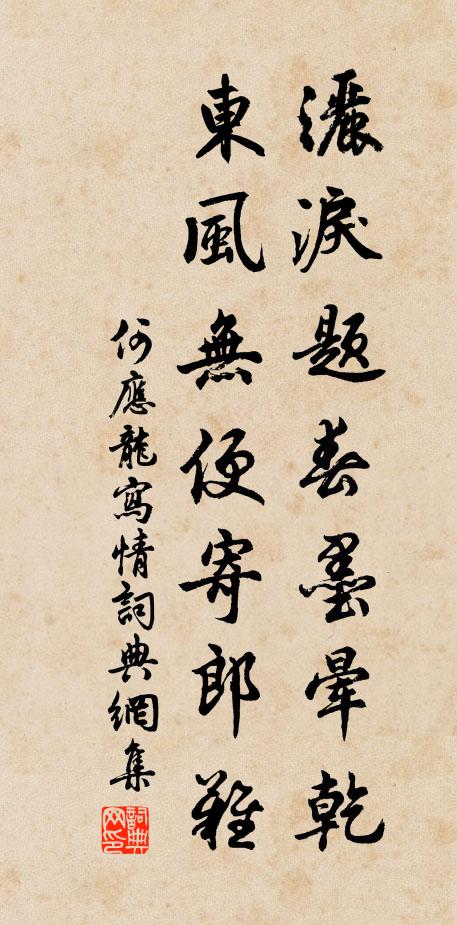 灑淚題春墨暈乾
東風無便寄郎難
何應龍寫情詞典網集
詞典網印